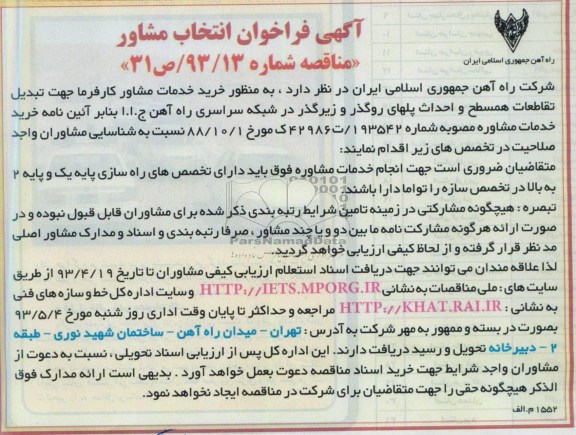 آگهی فراخوان انتخاب مشاور
«مناقصه شماره ۹۳/۱۳/ص۳۱»
راه آهن جمهوری اسلامی ایران
شرکت راه آهن جمهوری اسلامی ایران در نظر دارد ، به منظور خرید خدمات مشاور کارفرما جهت تبدیل
تقاطعات همسطح و احداث پلهای روگذر و زیرگذر در شبکه سراسری راه آهن ج.ا.ا بنابر آئین نامه خرید
خدمات مشاوره مصوبه شماره ۱۹۳۵۴۲/ت۴۲۹۸۶ک مورخ ۸۸/۱۰/۱ نسبت به شناسایی مشاوران واجد
صلاحیت در تخصص های زیر اقدام نمایند:
متقاضیان ضروری است جهت انجام خدمات مشاوره فوق باید دارای تخصص های راه سازی پایه یک و پایه ۲
به بالا در تخصص سازه را تواما دارا باشند
تبصره : هیچگونه مشارکتی در زمینه تامین شرایط رتبه بندی ذکر شده برای مشاوران قابل قبول نبوده و در
صورت ارائه هرگونه مشارکت نامه ما بین دو و یا چند مشاور ، صرفا رتبه بندی و اسناد و مدارک مشاور اصلی
مد نظر قرار گرفته و از لحاظ کیفی ارزیابی خواهد گردید.
ParsNamadData
لذا علاقه مندان می توانند جهت دریافت اسناد استعلام ارزیابی کیفی مشاوران تا تاریخ ۹۳/۴/۱۹ از طریق
سایت های : ملی مناقصات به نشانی HTTP://IETS.MPORG.IR وسایت اداره کل خط و سازه های فنی
به نشانی : HTTP://KHAT.RAI.IR مراجعه و حداکثر تا پایان وقت اداری روز شنبه مورخ ۹۳/۵/۴
بصورت در بسته و ممهور به مهر شرکت به آدرس : تهران - میدان راه آهن - ساختمان شهید نوری - طبقه
۲ - دبیرخانه تحویل و رسید دریافت دارند. این اداره کل پس از ارزیابی اسناد تحویلی ، نسبت به دعوت از
مشاوران واجد شرایط جهت خرید اسناد مناقصه دعوت بعمل خواهد آورد . بدیهی است ارائه مدارک فوق
الذکر هیچگونه حقی را جهت متقاضیان برای شرکت در مناقصه ایجاد نخواهد نمود.
۱۵۵۲ م.الف